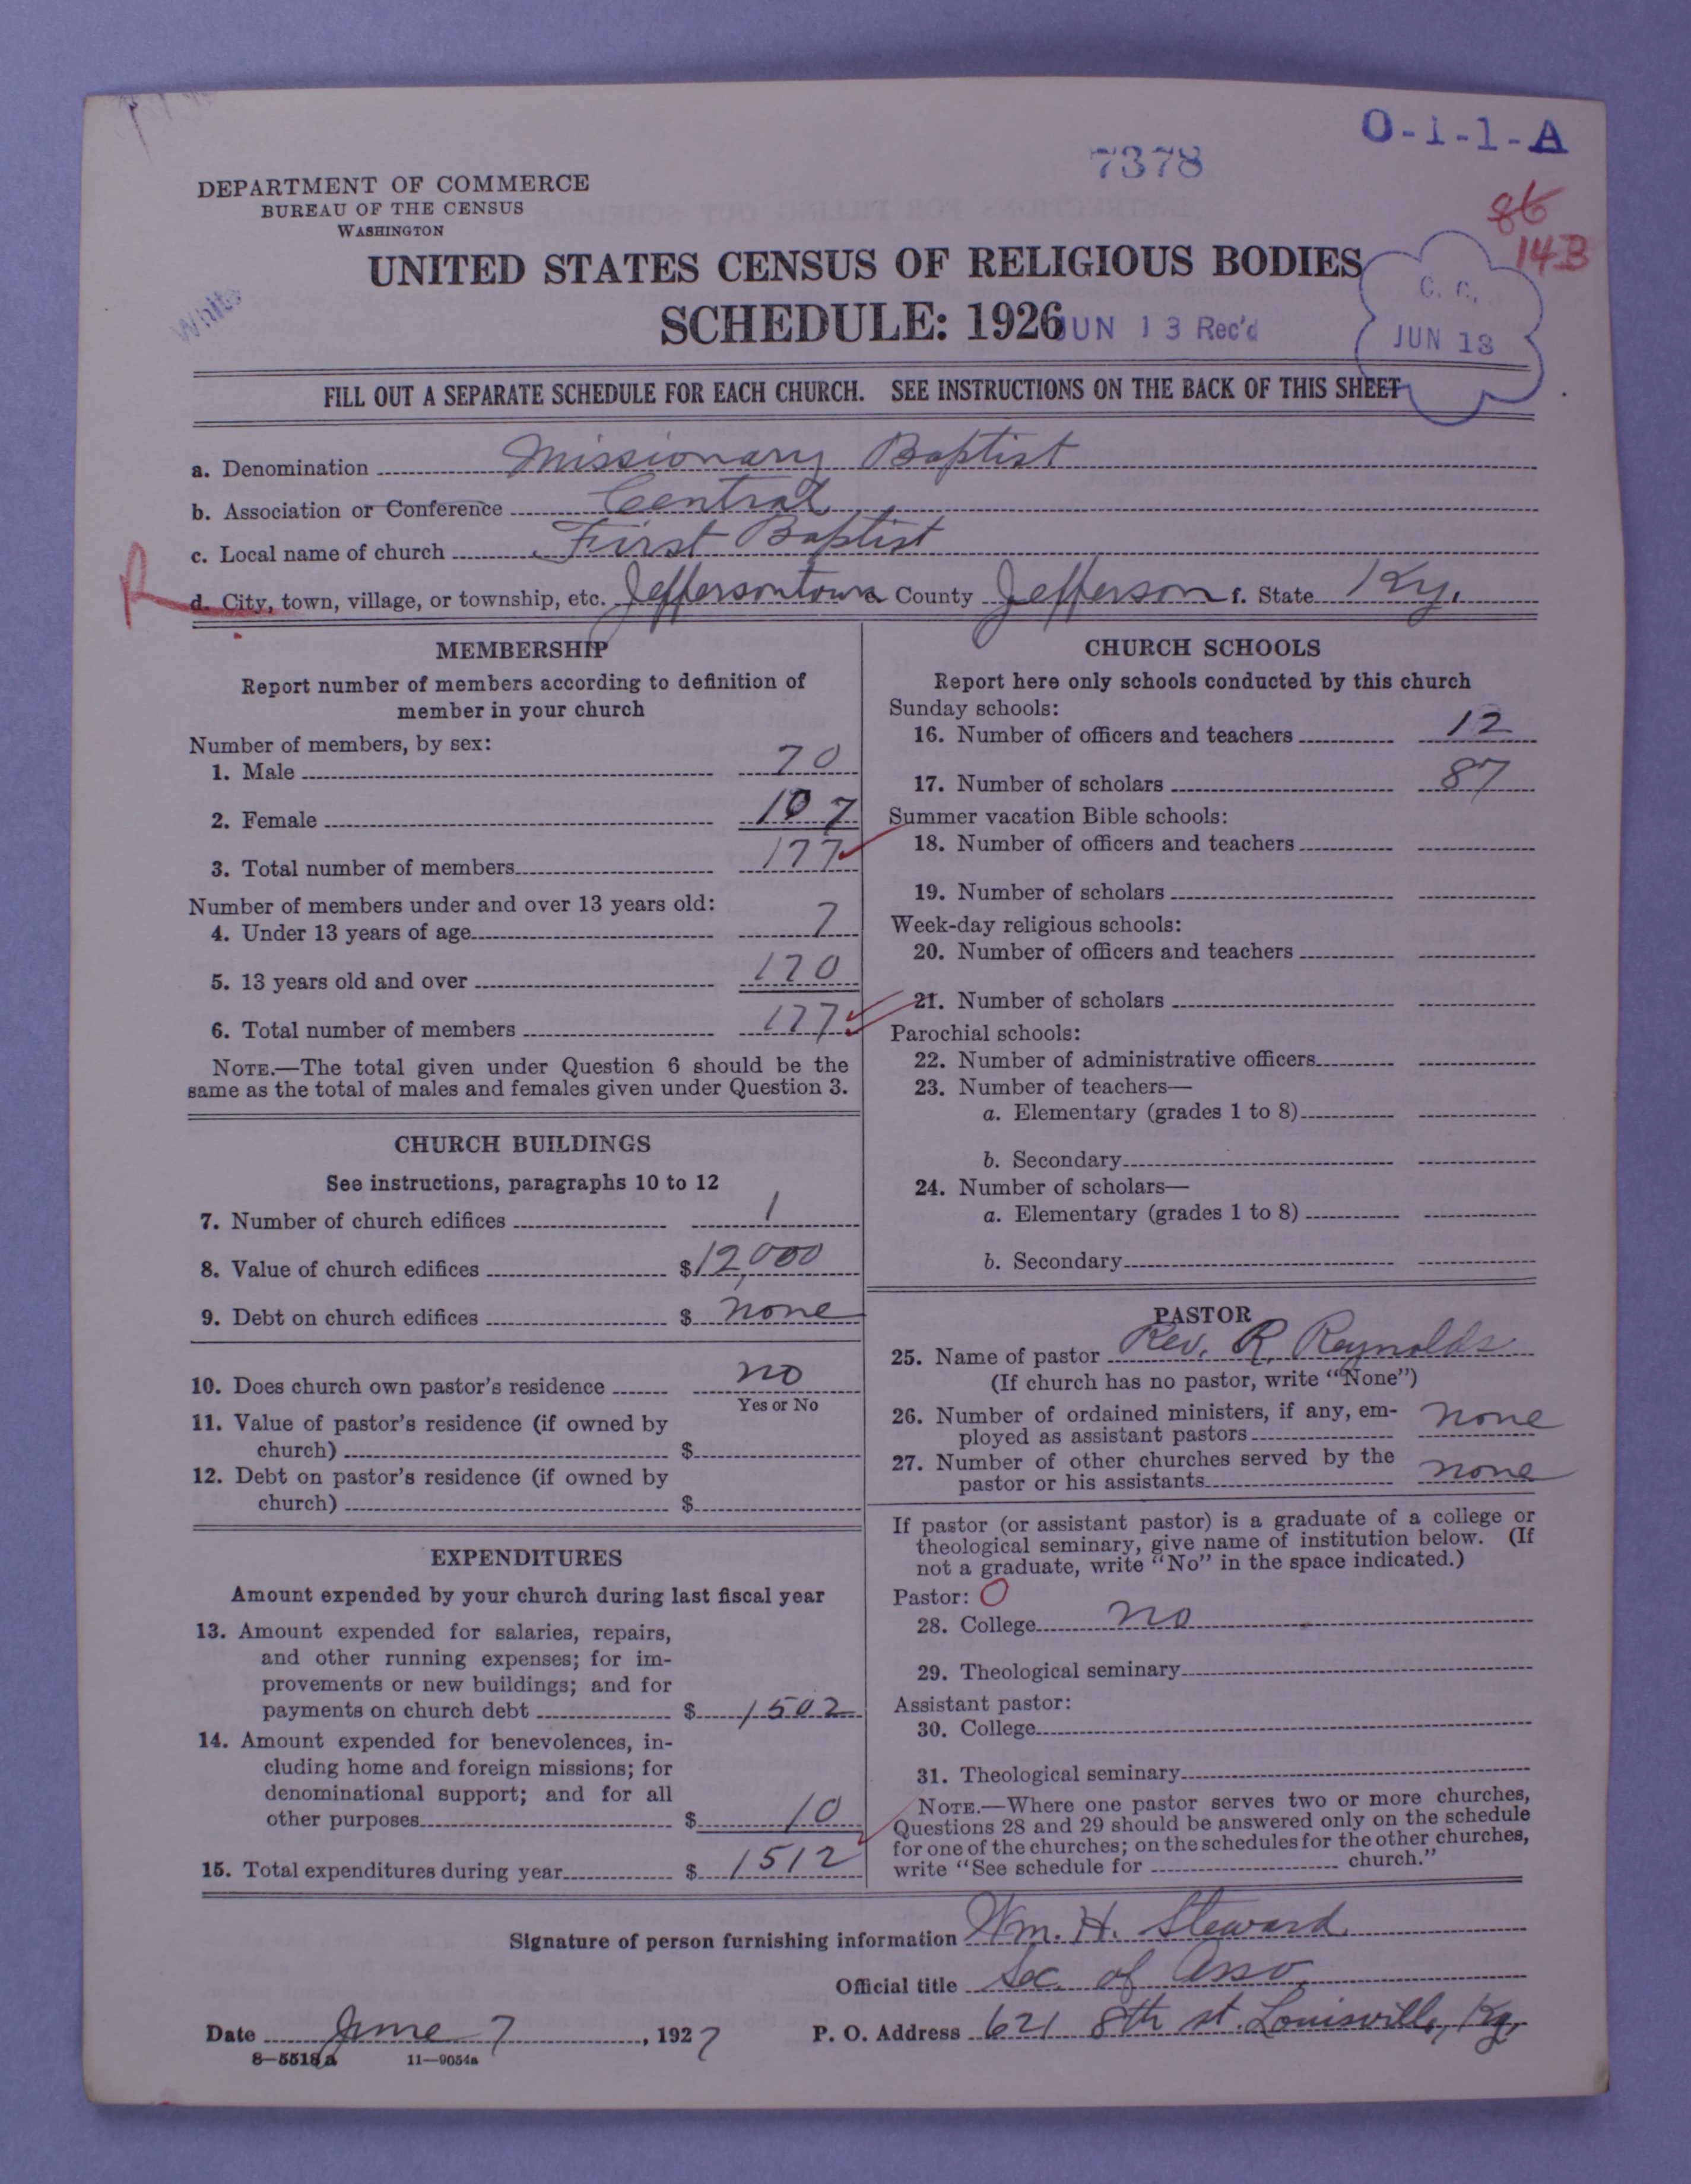 O-1-1-A
7378
DEPARTMENT OF COMMERCE
BUREAU OF THE CENSUS
WASHINGTON
86
14B
UNITED STATES CENSUS OF RELIGIOUS BODIES
White
SCHEDULE: 1926
JUN 13 Rec'd
C. C.
JUN 13
FILL OUT A SEPARATE SCHEDULE FOR EACH CHURCH. SEE INSTRUCTIONS ON THE BACK OF THIS SHEET
a. Denomination Missionary Baptist
b. Association or Conference Central
c. Local name of church First Baptist
R
d. City, town, village, or township, etc. Jeffersontown e. County Jefferson f. State Ky.
MEMBERSHIP
Report number of members according to definition of
member in your church
Number of members, by sex:
1. Male 70
2. Female 107
3. Total number of members 177
Number of members under and over 13 years old:
4. Under 13 years of age 7
5. 13 years old and over 170
6. Total number of members 177
NOTE.—The total given under Question 6 should be the
same as the total of males and females given under Question 3.
CHURCH BUILDINGS
See instructions, paragraphs 10 to 12
7. Number of church edifices 1
8. Value of church edifices $12,000
9. Debt on church edifices $ none
10. Does church own pastor's residence no
Yes or No
11. Value of pastor's residence (if owned by
church) $
12. Debt on pastor's residence (if owned by
church) $
EXPENDITURES
Amount expended by your church during last fiscal year
13. Amount expended for salaries, repairs,
and other running expenses; for im-
provements or new buildings; and for
payments on church debt $ 1502
14. Amount expended for benevolences, in-
cluding home and foreign missions; for
denominational support; and for all
other purposes $ 10
15. Total expenditures during year $ 1512
CHURCH SCHOOLS
Report here only schools conducted by this church
Sunday schools:
16. Number of officers and teachers 12
17. Number of scholars 87
Summer vacation Bible schools:
18. Number of officers and teachers
19. Number of scholars
Week-day religious schools:
20. Number of officers and teachers
21. Number of scholars
Parochial schools:
22. Number of administrative officers
23. Number of teachers—
a. Elementary (grades 1 to 8)
b. Secondary
24. Number of scholars—
a. Elementary (grades 1 to 8)
b. Secondary
PASTOR
25. Name of pastor Rev. R. Reynolds
(If church has no pastor, write "None")
26. Number of ordained ministers, if any, em-
ployed as assistant pastors none
27. Number of other churches served by the
pastor or his assistants none
If pastor (or assistant pastor) is a graduate of a college or
theological seminary, give name of institution below. (If
not a graduate, write "No" in the space indicated.)
Pastor: O
28. College no
29. Theological seminary
Assistant pastor:
30. College
31. Theological seminary
NOTE.—Where one pastor serves two or more churches,
Questions 28 and 29 should be answered only on the schedule
for one of the churches; on the schedules for the other churches,
write "See schedule for church."
Signature of person furnishing information Wm. H. Steward
Official title Sec. of Asso.
Date June 7, 1927 P. O. Address 621 8th st. Louisville, Ky.
8—5518a 11—9054a